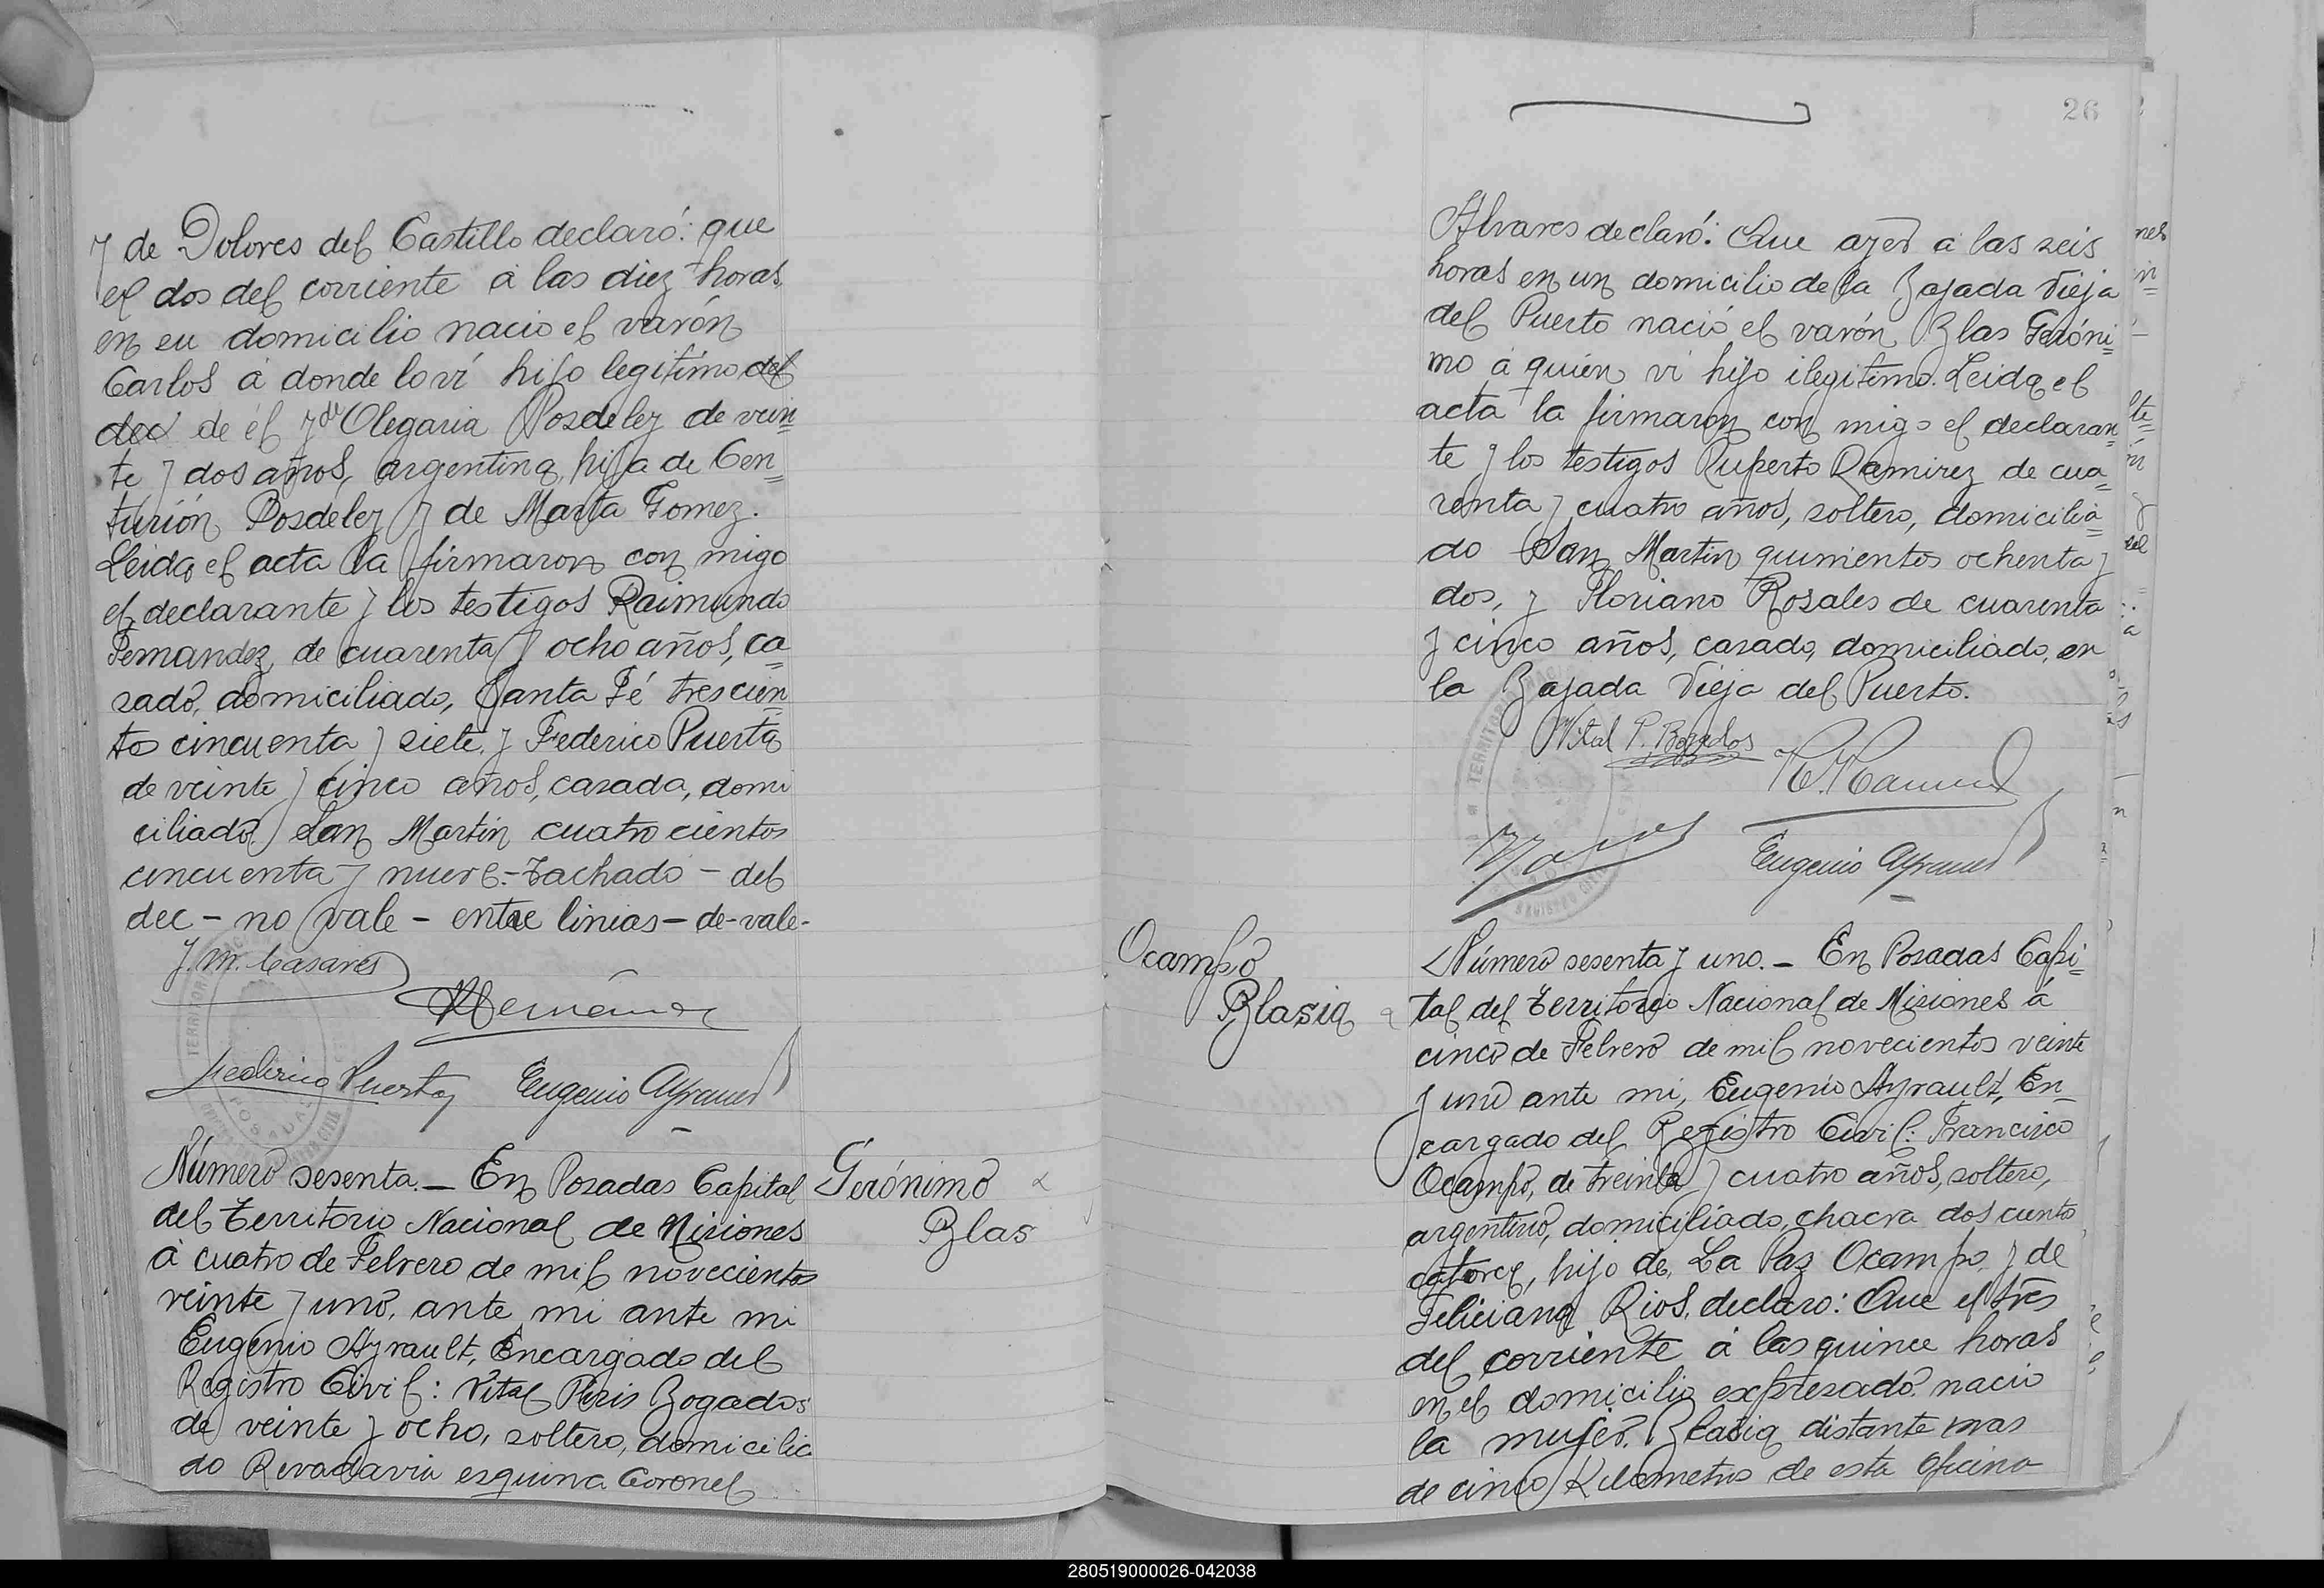 y de Dolores del Castillo declaró: que
el dos del corriente á las diez horas,
en su domicilio nacio el varón
Carlos á donde lo ví hijo legitimo del
dec de él y de Olegaria Posdeley de vein=
te y dos años, argentina, hija de Cen=
turión Posdeley y de Marta Gomez.
Leida el acta la firmaron con migo
el declarante y los testigos Raimundo
Fernandez, de cuarenta y ocho años, ca=
sado, domiciliado, Santa Fé trescien=
tos cincuenta y siete, y Federico Puerta
de veinte y cinco años, casada, domi
ciliado, San Martin cuatro cientos
cincuenta y nueve.- Tachado - del
dec - no vale - entre linias - de - vale -
J. M. Casares
Federico Puerta
Eugenio Ayrault
Número sesenta. _ En Posadas Capital
del Territorio Nacional de Misiones
á cuatro de Febrero de mil novecientos
veinte y uno, ante mi ante mi
Eugenio Ayrault, Encargado del
Registro Civil: Vital Peris Bogados
de veinte y ocho, soltero, domicilia
do Rivadavia esquina Coronel
Gerónimo
Blas
26
Alvares declaró: Que ayer á las seis
horas en un domicilio de la Bajada Vieja
del Puerto nació el varón Blas Geróni=
mo á quién ví hijo ilegitimo. Leida el
acta la firmaron con migo el declaran=
te y los testigos Ruperto Ramirez de cua=
renta y cuatro años, soltero, domicilia=
do San Martin quinientos ochenta y
dos, y Floriano Rosales de cuarenta
y cinco años, casado, domiciliado, en
la Bajada Vieja del Puerto.
Vital P. Bogados
R. Ramirez
Eugenio Ayrault
Ocampo
Blasia
Número sesenta y uno. _ En Posadas Capi=
tal del Territorio Nacional de Misiones á
cinco de Febrero de mil novecientos veinte
y uno ante mi, Eugenio Ayrault, En=
cargado del Registro Civil: Francisco
Ocampo, de treinta y cuatro años, soltero,
argentino, domiciliado, chacra dos ciento
catorce, hijo de, La Paz Ocampo y de
Feliciana Rios, declaro: Que el tres
del corriente á las quince horas
en el domicilio expresado nacio
la mujer Blasia distante mas
de cinco Kilometros de esta Oficina
280519000026-042038